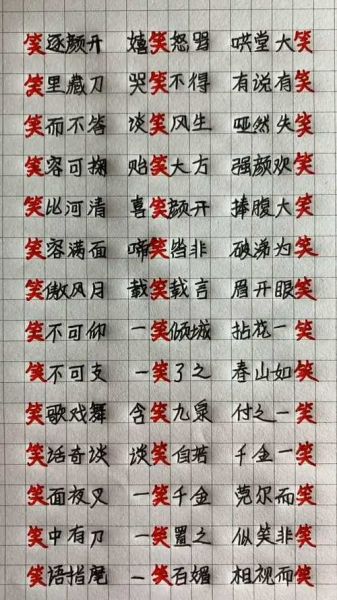 笑逐颜开 嬉笑怒骂 哄堂大笑
笑里藏刀 哭笑不得 有说有笑
笑而不答 谈笑风生 哑然失笑
笑容可掬 贻笑大方 强颜欢笑
笑比河清 喜笑颜开 捧腹大笑
笑容满面 啼笑皆非 破涕为笑
笑傲风月 载笑载言 眉开眼笑
笑不可仰 一笑倾城 拈花一笑
笑不可支 一笑了之 春山如笑
笑歌戏舞 含笑九泉 付之一笑
笑话奇谈 谈笑自若 千金一笑
笑面夜叉 一笑千金 莞尔而笑
笑中有刀 一笑置之 似笑非笑
笑语指麾 一笑百媚 相视而笑